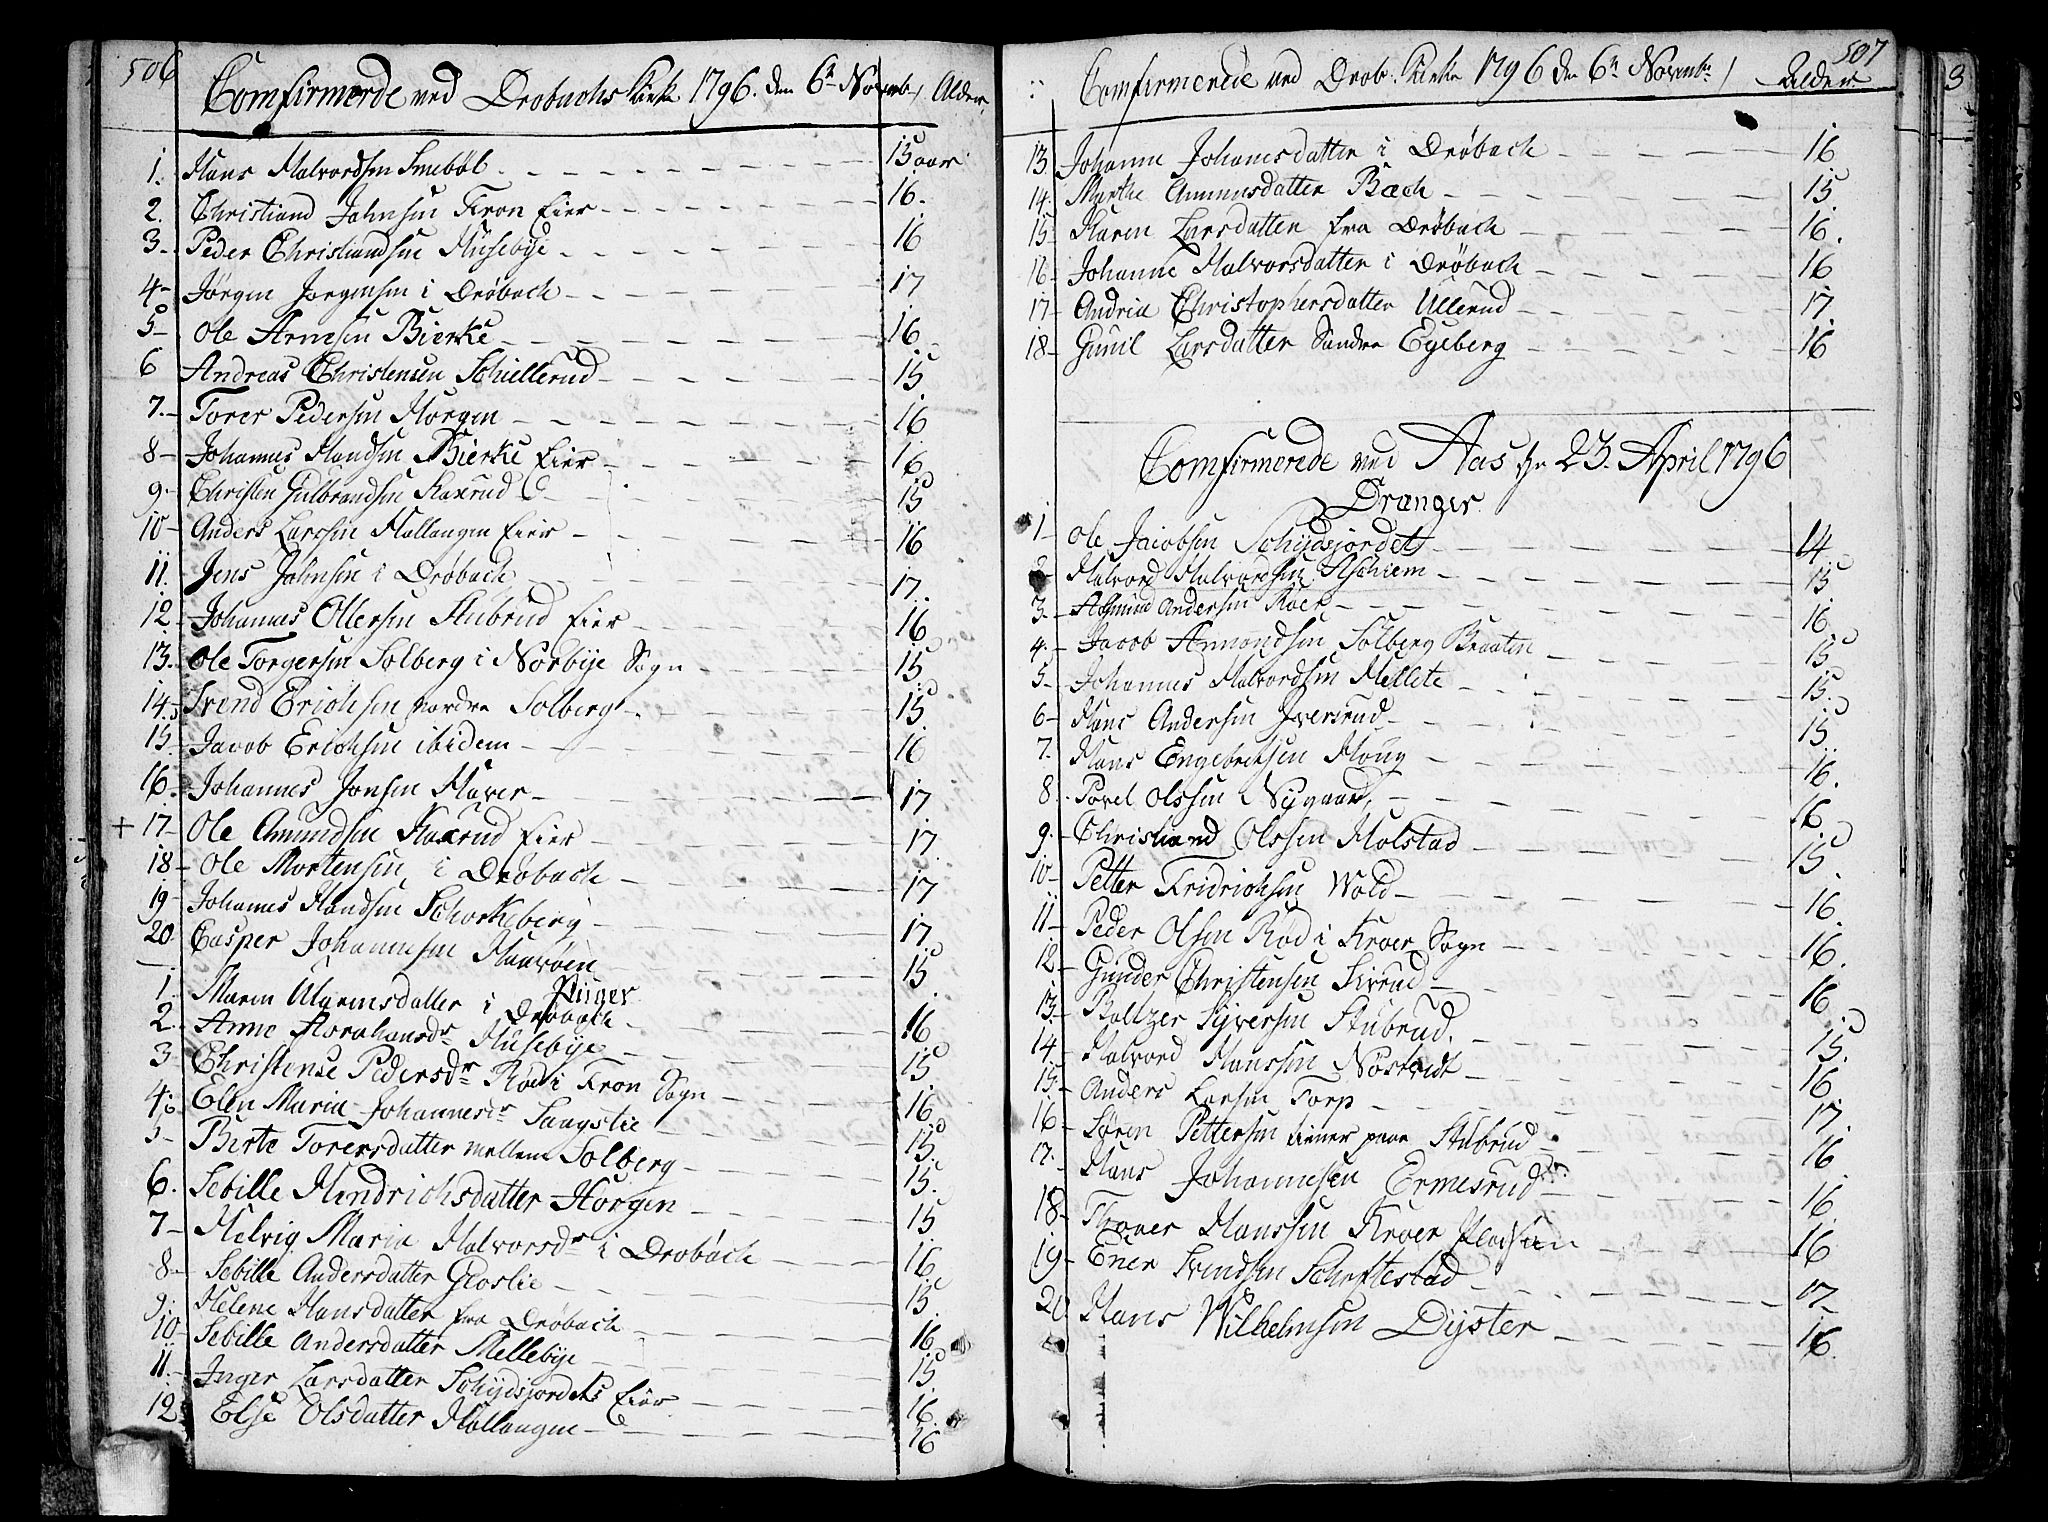 506
Comfirmerde ved Drobachs Kirke 1796. den 6n Novemb Alder
1. Hans Halvordsen Smebøl 15 aar
2. Christiand Johnsen Fron Eier 16.
3. Peder Christiandsen Husebye 16
4 Jørgen Jørgensen i Drøbach 17
5 Ole Arnesen Bierke 16
6 Andreas Christensen Schiellerud 15
7. Torer Pedersen Horgen 16
8 Johannes Handsen Bierke Eier 16
9. Christen Gulbrandsen Kaxrud E 15
10 Anders Larssen Hallangen Eier 16
11. Jens Johnsen i Drøbach 17.
12 Johannes Ollersen Stubrud Eier 16
13. Ole Torgersen Solberg i Norbye Sogn 15
14. Svend Erichsen nordre Solberg 15
15. Jacob Erichsen ibidem 16
16. Johannes Jonsen Haver 17
+ 17 Ole Amundsen Kaxrud Eier 17.
18 Ole Mortensen i Drøbach 17
19 Johannes Handsen Schorkeberg 17
20 Casper Johannesen Haveøen 15
Piiger
1. Maren Marensdatter i Drøbach 16
2. Anne Abrahamsdr Husebye 15
3 Christense Pedersdr Rød i Fron Sogn 16
4. Elen Maria Johannesdr Saugstie 15
5 Birte Torersdatter mellem Solberg 15.
6. Sebille Hendrichsdatter Horgen 15
7 Helvig Maria Halvorsdr i Drobach 16
8 Sebille Andersdatter Gloslie 15
9. Helene Hansdatter fra Drøbach 16
10 Sebille Andersdatter Mellebye 15
11. Inger Larsdatter Schydsjordets Eier 16.
12 Else Olsdatter Hallangen E 16
507
Comfirmerede ved Drob. Kirke 1796 den 6n Novembr Alder
13. Johanne Johannesdatter i Drøbach 16
14. Marthe Amunnsdatter Bæch 15
15 Karen Larsdatter fra Drøbach 16.
16 Johanne Halvorsdatter i Drøbach 16
17 Andrea Christophersdatter Ullerud 17.
18 Gunil Larsdatter Søndre Egeberg 16
Comfirmerede ved Aas 23. April 1796
Drænger
1 Ole Jacobsen Schydsjordet 14
2 Halvord Halvordsen Aschiem 15
3. Asmund Andersen Roer 16.
4. Jacob Amondsen Solberg Braaten 15
5 Johannes Halvordsen Mellete 15.
6 Hans Andersen Iversrud 15
7. Hans Engebretsen Houg 16.
8. Povel Olssen Nygaard 16
9. Christiand Olssen Holstad 15
10 Petter Fridrichsen Wold 16.
11 Peder Olsen Rød i Kroer Sogn 16.
12 Gunder Christensen Sivrud 16.
13. Baltzer Syversen Stubrud. 15.
14. Halvord Hanssen Nøstvedt 16
15. Anders Larsen Torp 17.
16 Søren Pettersen tiener paa Stubrud 16
17. Hans Johannesen Ermesrud 16
18 Thorer Hanssen Kroer Pladsen 16
19 Ener Svendsen Scheftestad 17
20 Hans Wilhelmsen Dyster 16.